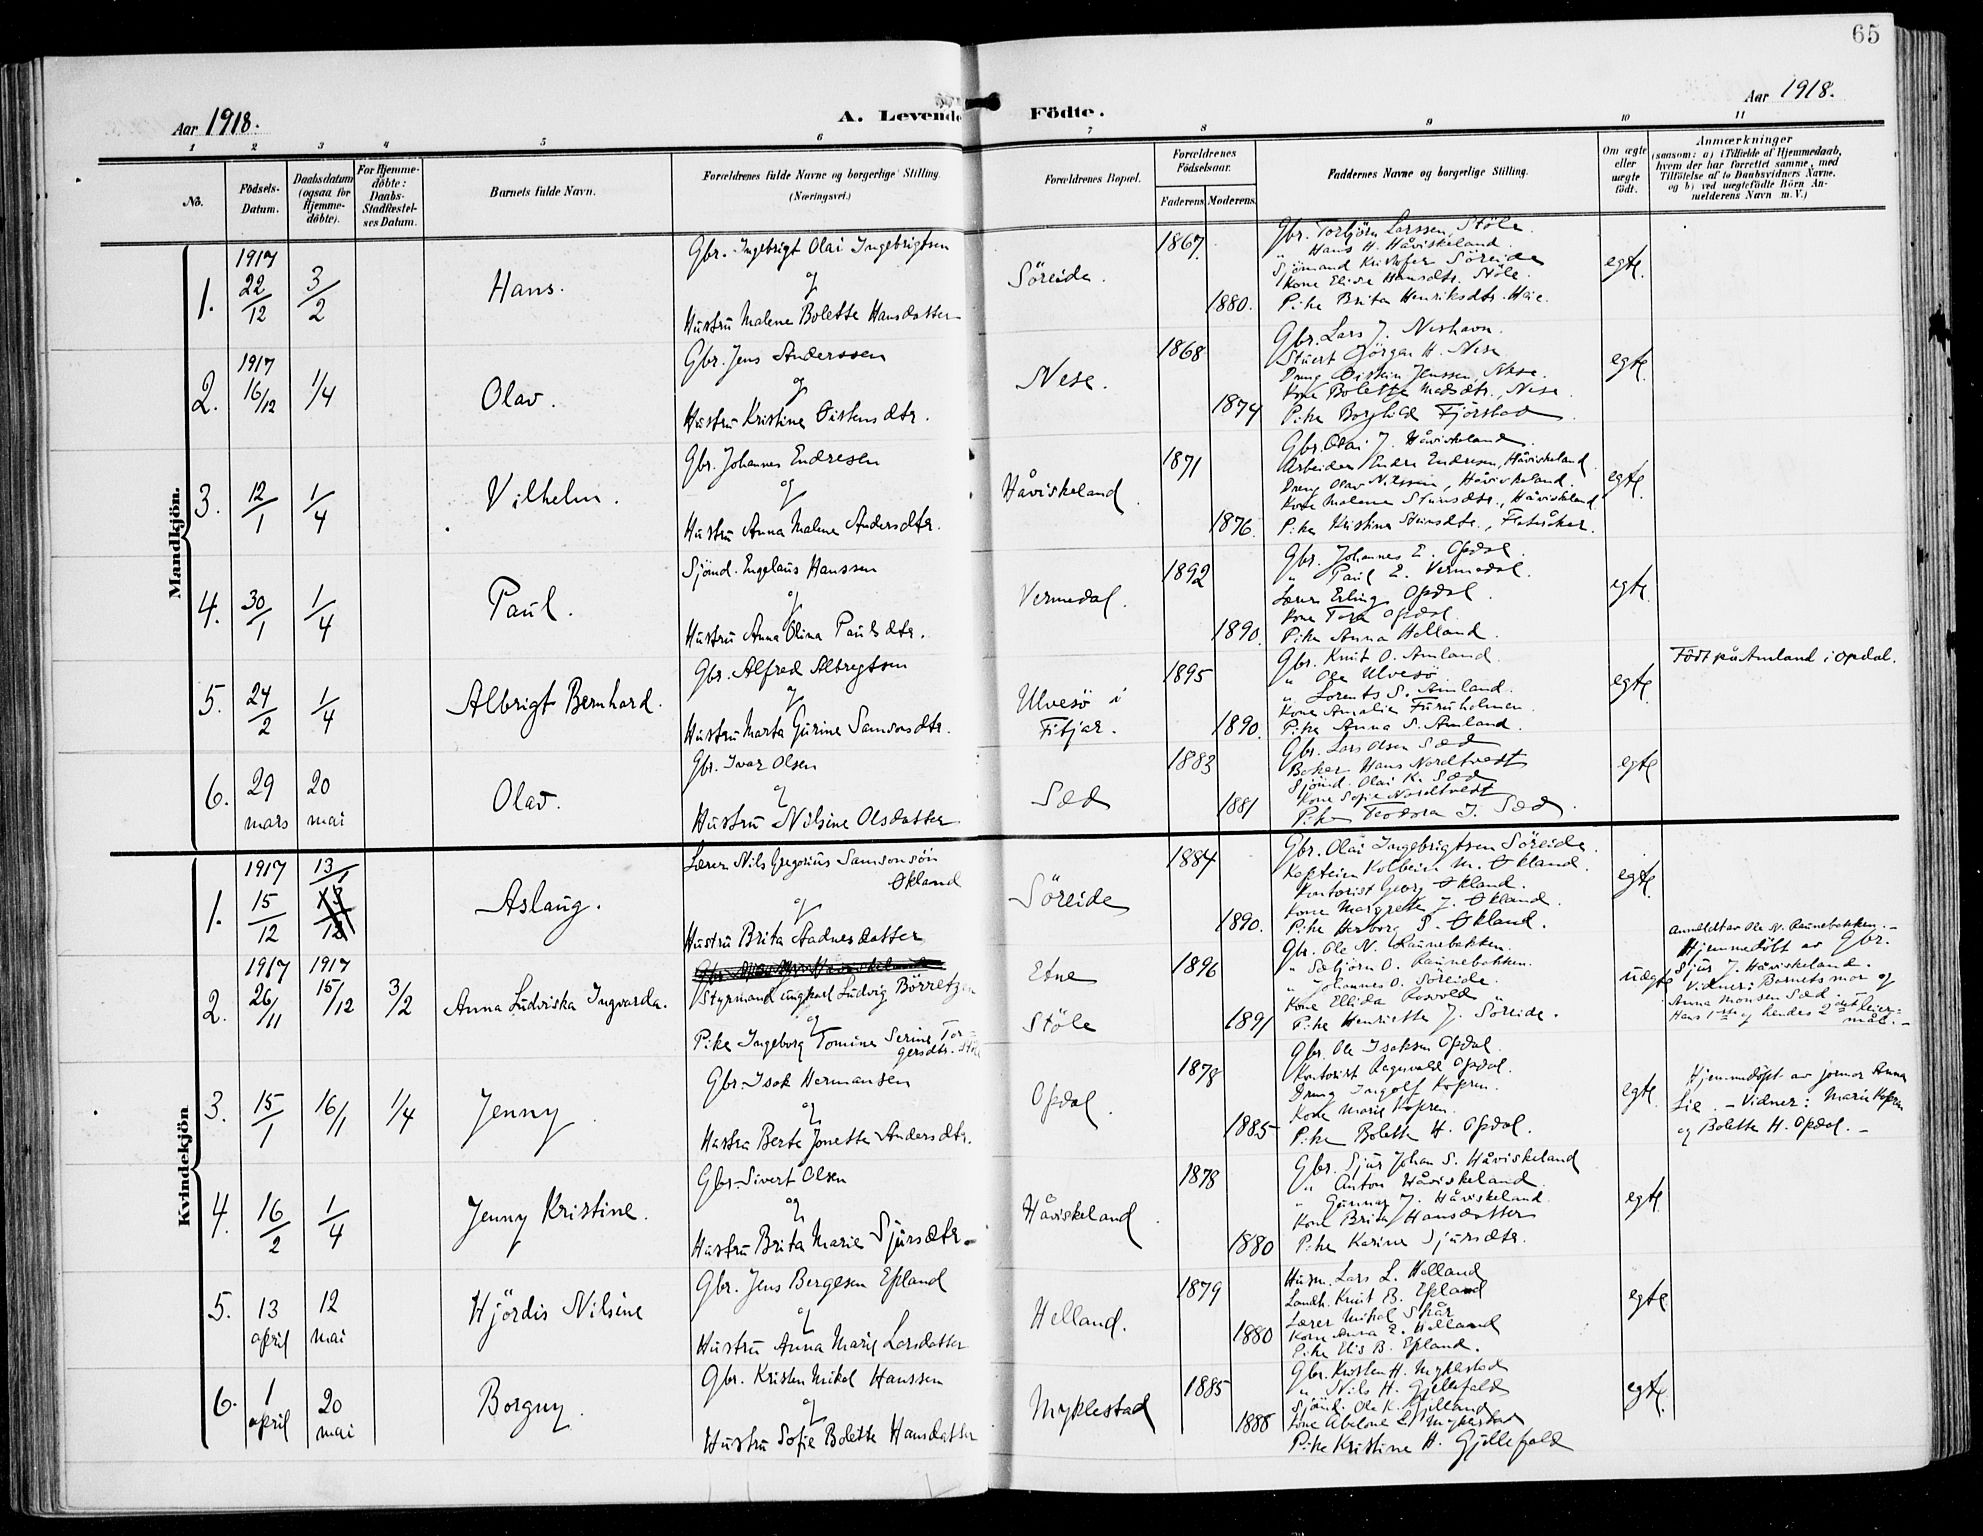 65
Aar 1918.
A. Levende Födte.
Aar 1918.
1 2 3 4 5 6 7 8 9 10 11
No.
Födsels-
Datum.
Daabsdatum
(ogsaa for
Hjemme-
döbte).
For Hjemme-
döbte:
Daabs-
Stadfæstel-
ses Datum.
Barnets fulde Navn.
Forældrenes fulde Navne og borgerlige Stilling.
(Næringsvei.)
Forældrenes Bopæl.
Forældrenes
Födselsaar.
Faderens. Moderens.
Faddernes Navne og borgerlige Stilling.
Om ægte
eller
uægte
födt.
Anmærkninger
(saasom: a) i Tilfælde af Hjemmedaab,
hvem der har forrettet samme, med
Tilföielse af to Daabsvidners Navne,
og b) ved uægtefödte Börn An-
melderens Navn m. V.)
Mandkjön.
1. 1917 22/12 3/2 Hans.
Gbr. Ingebrigt Olai Ingebrigtsen
og
Hustru Malene Bolette Hansdatter
Söreide. 1867. 1880.
Gbr. Torbjörn Larssen, Stöle.
" Hans H. Håviskeland.
Sjömand Kristofer Söreide
Kone Elise Hansdtr. Stöle.
Pike Brita Henriksdtr. Hæie.
egte.
2. 1917 16/12 1/4 Olav.
Gbr. Jens Anderssen
og
Hustru Kristine Östensdtr.
Nese. 1868 1874
Gbr. Lars J. Neshavn.
Stuert Jörgen H. Nese
Dreng Öistein Jenssen, Nese.
Kone Bolette Madsdtr., Nese.
Pike Borghild Fjörstad
egte.
3. 12/1 1/4 Vilhelm.
Gbr. Johannes Endresen
og
Hustru Anna Malene Andersdtr.
Håviskeland. 1871 1876.
Gbr. Olai J. Håviskeland.
Arbeider Endre Endresen, Håviskeland.
Dreng Olav Nilssen, Håviskeland.
Kone Malene Steinsdtr., Håviskeland
Pike Kristine Steinsdtr., Flatråker.
egte.
4. 30/1 1/4 Paul.
Sjömd. Engelaus Hanssen
og
Hustru Anna Olina Paulsdtr.
Vermedal. 1892 1890.
Gbr. Johannes E. Opdal.
" Paul E. Vermedal.
Lærer Erling Opdal.
Kone Tora Opdal.
Pike Anna Helland.
egte.
5. 24/2 1/4 Albrigt Bernhard.
Gbr. Alfred Albregtsen
og
Hustru Marta Gurine Samsonsdtr.
Ulvesö i
Fitjar. 1895 1890.
Gbr. Knut O. Amland.
" Ole Ulvesö
" Lorents S. Amland.
Kone Amalie Furuholmen.
Pike Anna S. Amland.
egte.
Födt på Amland i Opdal.
6. 29 mars 20 mai Olav.
Gbr. Ivar Olsen
og
Hustru Nilsine Olsdatter
Sæd 1883 1881
Gbr. Lars Olsen Sæd
Baker Hans Nordtvedt
Sjömd. Olai K. Sæd
Kone Sofie Nordtvedt
Pike Teodora I. Sæd.
egte
Kvindekjön
1. 1917 15/12 13/1 Aslaug.
Lærer Nils Gregorius Samsonsön
Økland
og
Hustru Brita Aadnesdatter
Söreide 1884 1890.
Gbr. Olai Ingebrigtsen Söreide.
Kaptein Kolbein M. Økland.
Kontorist Georg Økland.
Kone Margrethe J. Økland.
Pike Herborg P. Økland.
egte
2. 1917 26/11 1917 15/12 3/2 Anna Ludviska Ingvarda.
Styrmand ungkarl Ludvig Börretzen
og
Pike Ingeborg Tomine Serine Tor-
gersdtr.
Etne
Stöle 1896 1891
Gbr. Ole N. Raunebakken.
" Sæbjörn O. Raunebakken.
" Johannes O. Söreide.
Kone Ellida Rosvold "
Pike Henriette J. Söreide.
uegte
Anmeldt av Ole N. Raunebakken. –
Hjemmedöbt av Gbr.
Sjur J. Håviskeland.
Vidner: Barnets mor og
Anna Monsen Sæd. –
Hans 1ste og hendes 2det leier-
mål. –
3. 15/1 16/1 1/4 Jenny.
Gbr. Isak Hermansen
og
Hustru Berte Jonette Andersdtr.
Opdal. 1878 1885
Gbr. Ole Isaksen Opdal.
Kontorist Ragnvald Opdal.
Dreng Ingolf Kopren.
Kone Marie Kopren.
Pike Bolette H. Opdal.
egte.
Hjemmedöpt av jormor Anna
Lie. – Vidner: Marie Kopren
og Bolette H. Opdal. –
4. 16/2 1/4 Jenny Kristine.
Gbr. Sivert Olsen
og
Hustru Brita Marie Sjursdtr.
Håviskeland. 1878 1880
Gbr. Sjur Johan S. Håviskeland
" Anton Håviskeland.
" Gunnar J. Håviskeland.
Kone Brita Hansdatter
Pike Karine Sjursdtr.
egte
5. 13 april 12 mai Hjördis Nilsine
Gbr. Jens Bergesen Epland
og
Hustru Anna Marie Larsdatter
Helland. 1879 1880
Husm. Lars L. Helland
Landh. Knut B. Epland
Lærer Mikal Skår
Kone Anna E. Helland
Pike Elis B. Epland.
egte
6. 1 april 20 mai Borguy.
Gbr. Kristen Mikal Hanssen
og
Hustru Sofie Bolette Hansdatter
Myklestad 1885 1888
Gbr. Kristen H. Myklestad
" Nils H. Gjellefald
Sjömd. Ole K. Helland
Kone Abelone L. Myklestad
Pike Kristine H. Gjellefald
egte.